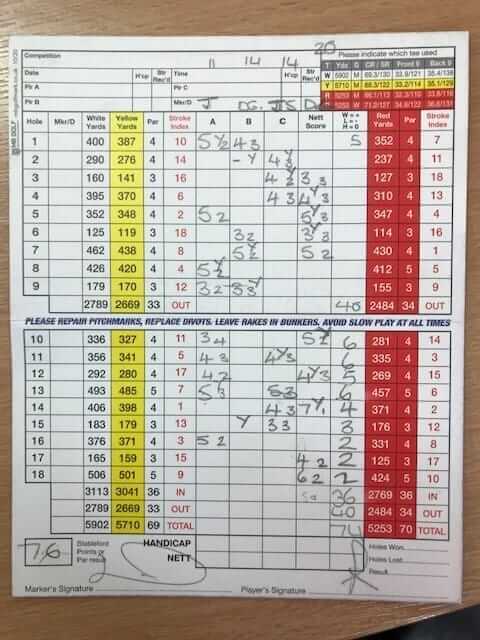 20
Competition 11 14 14 Please indicate which tee used
Date H'cp Str Rec'd Time H'cp Str Rec'd T Yds G CR / SR Front 9 Back 9
Plr A Plr C W 5902 M 69.3/130 33.9/121 35.4/138
Y 5710 M 68.3/122 33.2/114 35.1/129
Plr B Mkr/D J DG JS R 5253 M 66.1/113 32.3/110 33.8/116
Hole Mkr/D White Yards Yellow Yards Par Stroke Index A B C Nett Score W = + L = - H = 0 Red Yards Par Stroke Index
1 400 387 4 10 5 ½ 4 3 5 352 4 7
2 290 276 4 14 - Y 4 3 237 4 11
3 160 141 3 16 4 2 3 3 127 3 18
4 395 370 4 6 4 3 4 3 310 4 13
5 352 348 4 2 5 2 5 3 347 4 4
6 125 119 3 18 3 2 3 3 114 3 16
7 462 438 4 8 5 2 5 2 430 4 1
8 426 420 4 4 5 2 412 5 5
9 179 170 3 12 3 2 3 3 155 3 9
2789 2669 33 OUT 40 2484 34 OUT
PLEASE REPAIR PITCHMARKS, REPLACE DIVOTS. LEAVE RAKES IN BUNKERS. AVOID SLOW PLAY AT ALL TIMES
10 336 327 4 11 3 4 5 2 6 281 4 14
11 356 341 4 5 4 3 4 3 6 335 4 3
12 292 280 4 17 4 2 4 3 5 269 4 15
13 493 485 5 7 5 3 5 3 6 457 5 6
14 406 398 4 1 4 3 7 4 371 4 2
15 183 179 3 13 Y 3 3 3 176 3 12
16 376 371 4 3 5 2 2 331 4 8
17 165 159 3 15 4 2 2 125 3 17
18 506 501 5 9 6 2 2 424 5 10
3113 3041 36 IN 36 2769 36 IN
2789 2669 33 OUT 40 2484 34 OUT
5902 5710 69 TOTAL 74 5253 70 TOTAL
76 Stableford Points or Par result HANDICAP Holes Won
NETT Holes Lost
Result
Marker's Signature Player's Signature